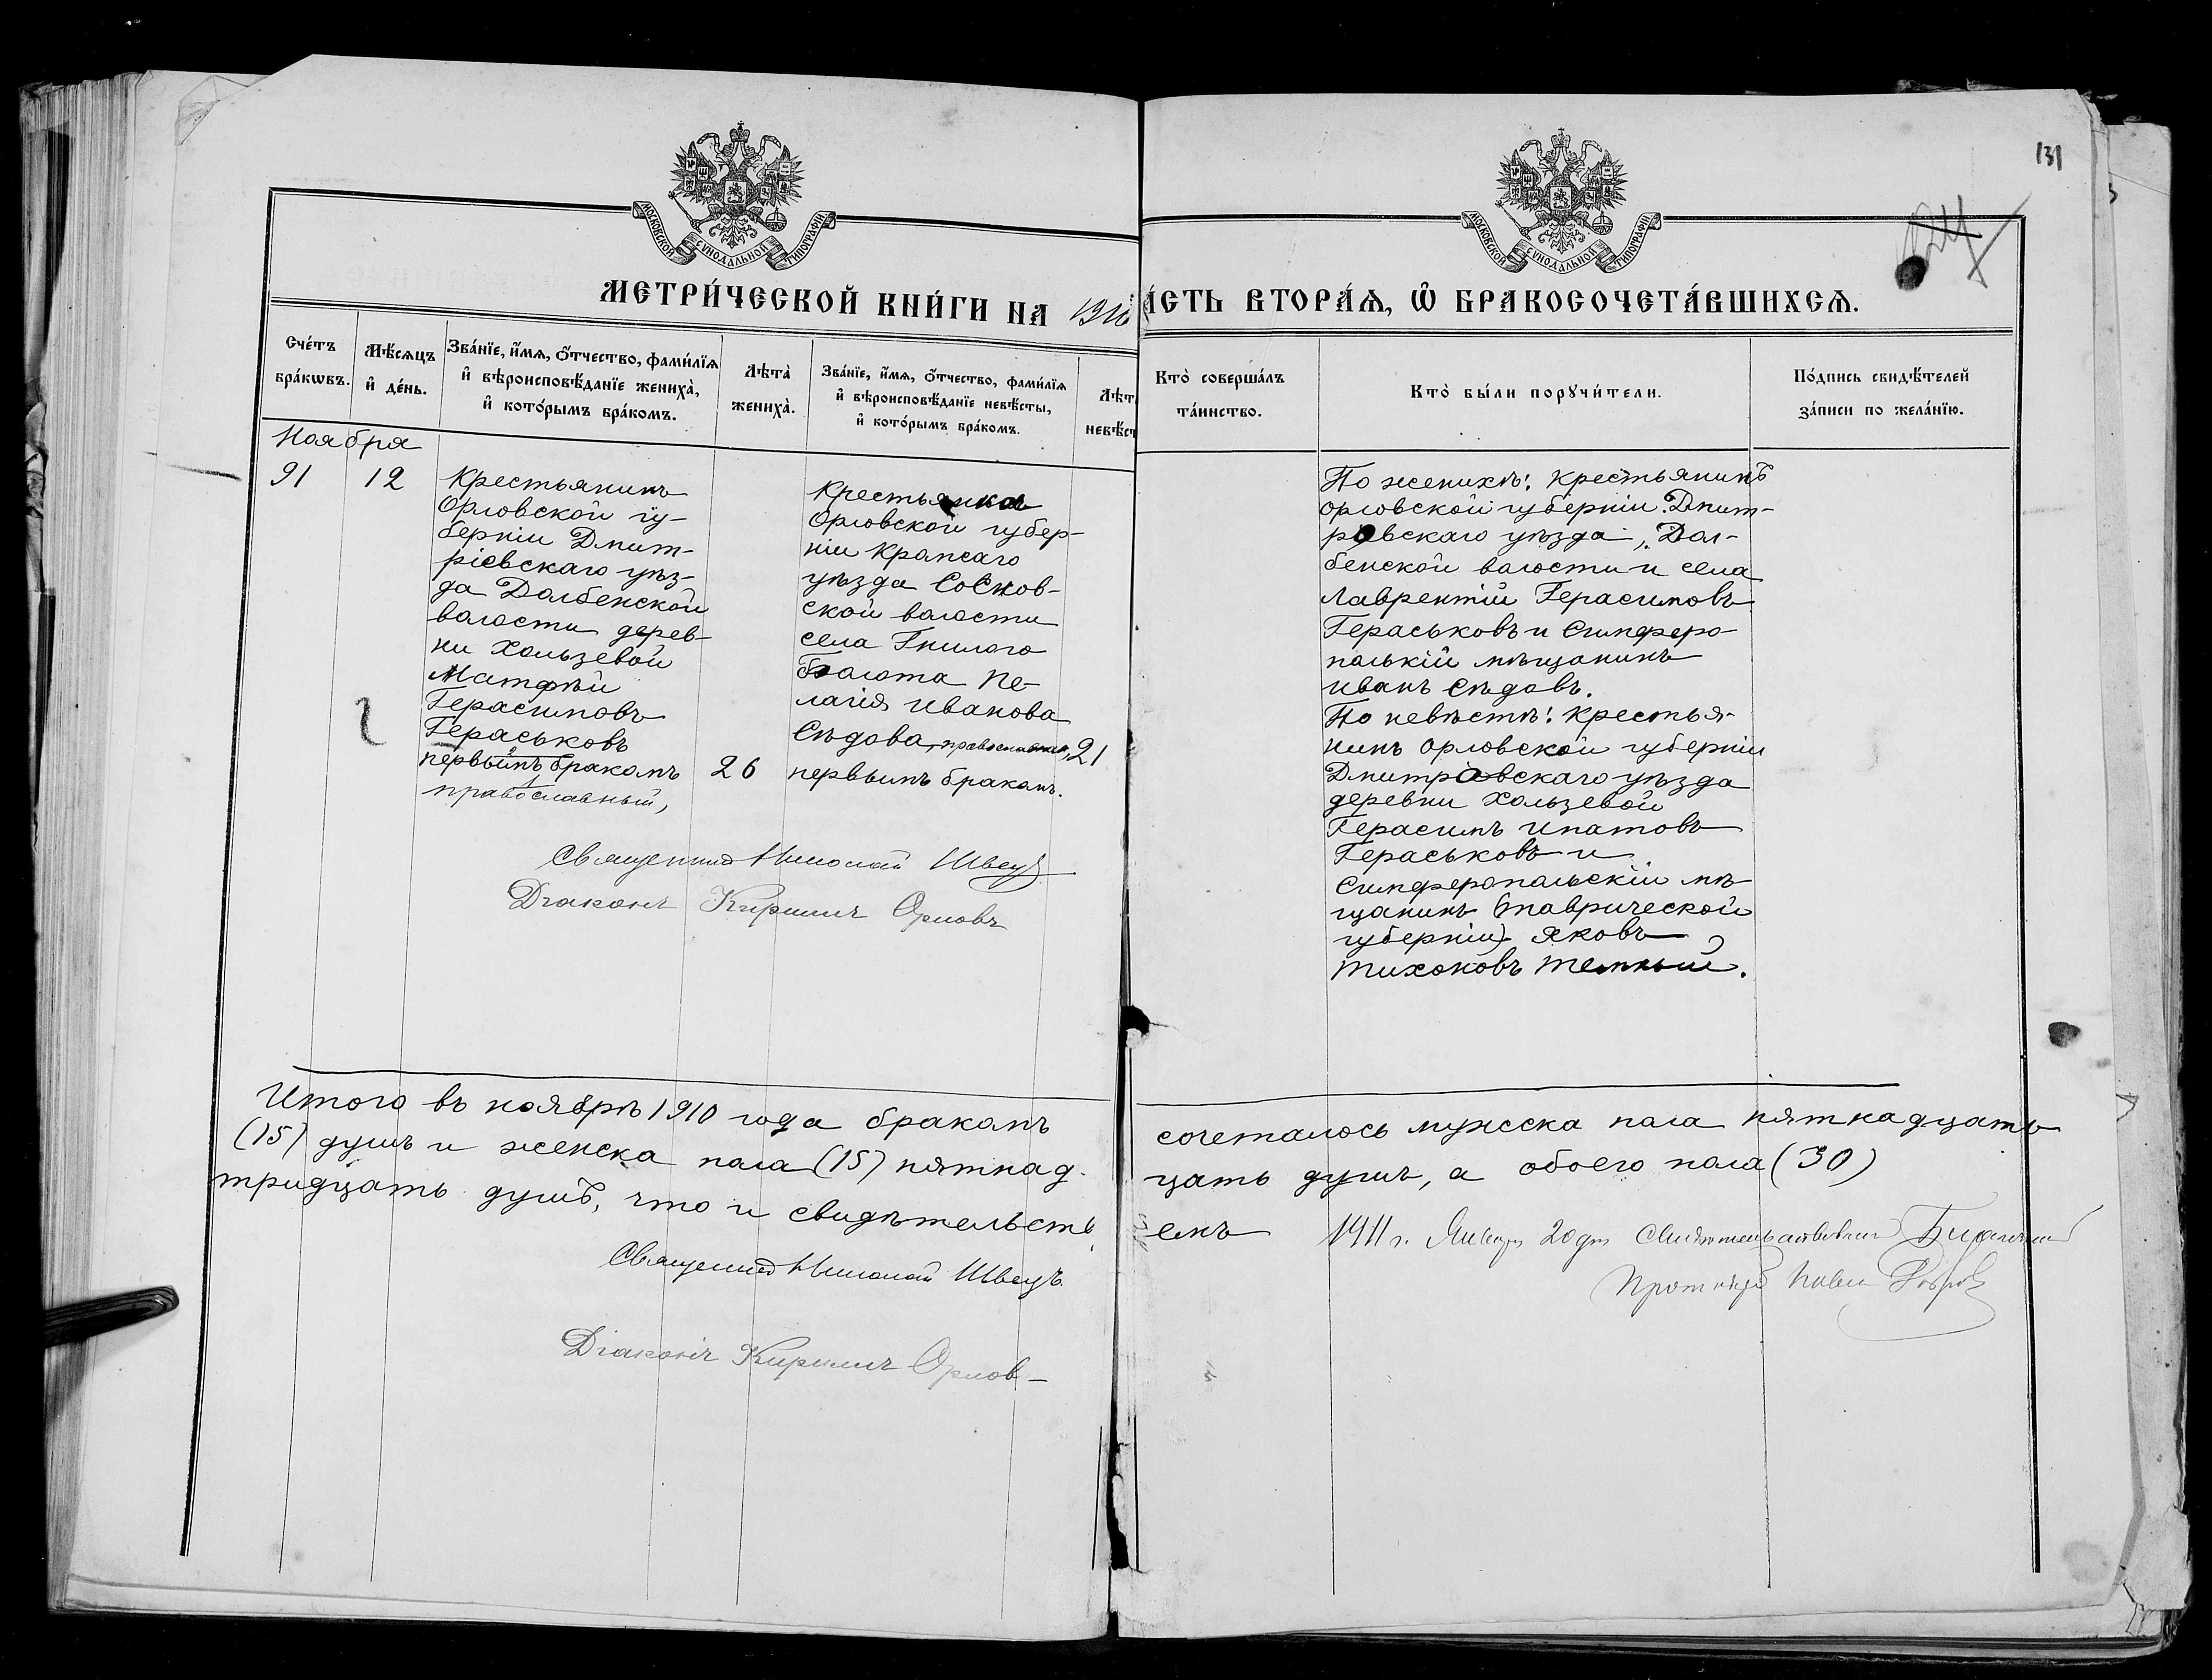 131
МОСКОВСКОЙ СѴНОДАЛЬНОЙ ТИПОГРАФІИ
МОСКОВСКОЙ СѴНОДАЛЬНОЙ ТИПОГРАФІИ
МЕТРИ́ЧЕСКОЙ КНИ́ГИ НА 1910
А́СТЬ ВТОРА́Ѧ, Ѽ БРАКОСОЧЕТА́ВШИХСѦ.
Сче́тъ бра́кѡвъ.
Мѣ́сѧцъ и҆ де́нь.
Зва́нїе, и҆́мѧ, ѻ҆́тчество, фами́лїѧ
и҆ вѣроисповѣ́данїе жениха̀,
и҆ кото́рымъ бра́комъ.
Лѣта̀ жениха̀.
Зва́нїе, и҆́мѧ, ѻ҆́тчество, фами́лїѧ
и҆ вѣроисповѣ́данїе невѣ́сты,
и҆ кото́рымъ бра́комъ.
Лѣт
невѣ́ст
Кто̀ соверша́лъ
та́инство.
Кто̀ бы́ли порꙋчи́тели.
По́дпись свидѣ́телей
за́писи по жела́нїю.
Ноября
91
12
Крестьянинъ
Орловской гу-
берніи Дмит-
ріевскаго уѣз-
да Долбенской
волости дерев-
ни Хользевой
Матфѣй
Герасимовъ
Гераськовъ
первымъ бракомъ
православный,
26
Крестьянка
Орловской губер-
ніи Кромсаго
уѣзда Сосков-
ской волости
села Гнилого
Болота Пе-
лагія Иванова
Сѣдова, православная,
первымъ бракомъ.
21
По женихѣ: Крестьянинъ
Орловской губерніи Дмит-
ровскаго уѣзда, Дол-
бенской волости и села
Лаврентій Герасимовъ
Гераськовъ и Симферо-
полькій мѣщанинъ
Иванъ Сѣдовъ.
По невѣстѣ: Крестья-
нинъ Орловской губерніи
Дмитровскаго уѣзда
деревни Хользевой
Герасимъ Ипатовъ
Гераськовъ и
Симферопольскій мѣ-
щанинъ (Таврической
губерніи) Яковъ
Тихоновъ Темный.
Священникъ Николай Швецъ
Діаконъ Кириллъ Орловъ
Итого въ ноябрѣ 1910 года бракомъ
сочеталось мужска пола пятнадцать
(15) душъ и женска пола (15) пятнад-
цать душъ, а обоего пола (30)
тридцать душъ, что и свидѣтельств
емъ
Священникъ Николай Швецъ
Діаконъ Кириллъ Орлов
1911 г. Января 20 дня свидѣтельствовалъ Благочинный
Протоіерей Павел